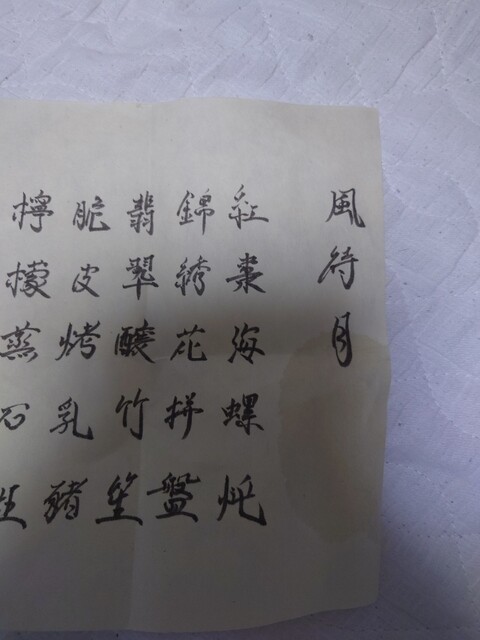 風待月
紅棗海螺炖
錦綉花拼盤
翡翠竹笙
脆皮烤乳豬
檸檬蒸石